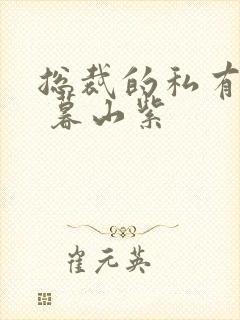 总裁的私有
暮山紫
崔元英